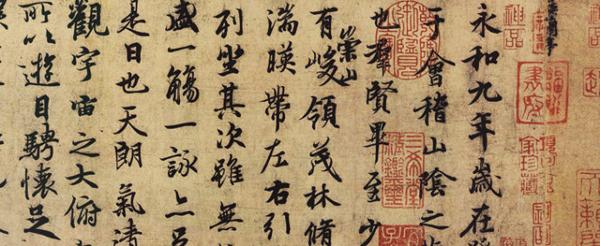 永和九年歲在
于會稽山陰之
也群賢畢至少
有崇山峻領茂林脩
湍暎帶左右引
列坐其次雖無
盛一觴一詠亦足
是日也天朗氣清
觀宇宙之大俯
所以遊目騁懷足